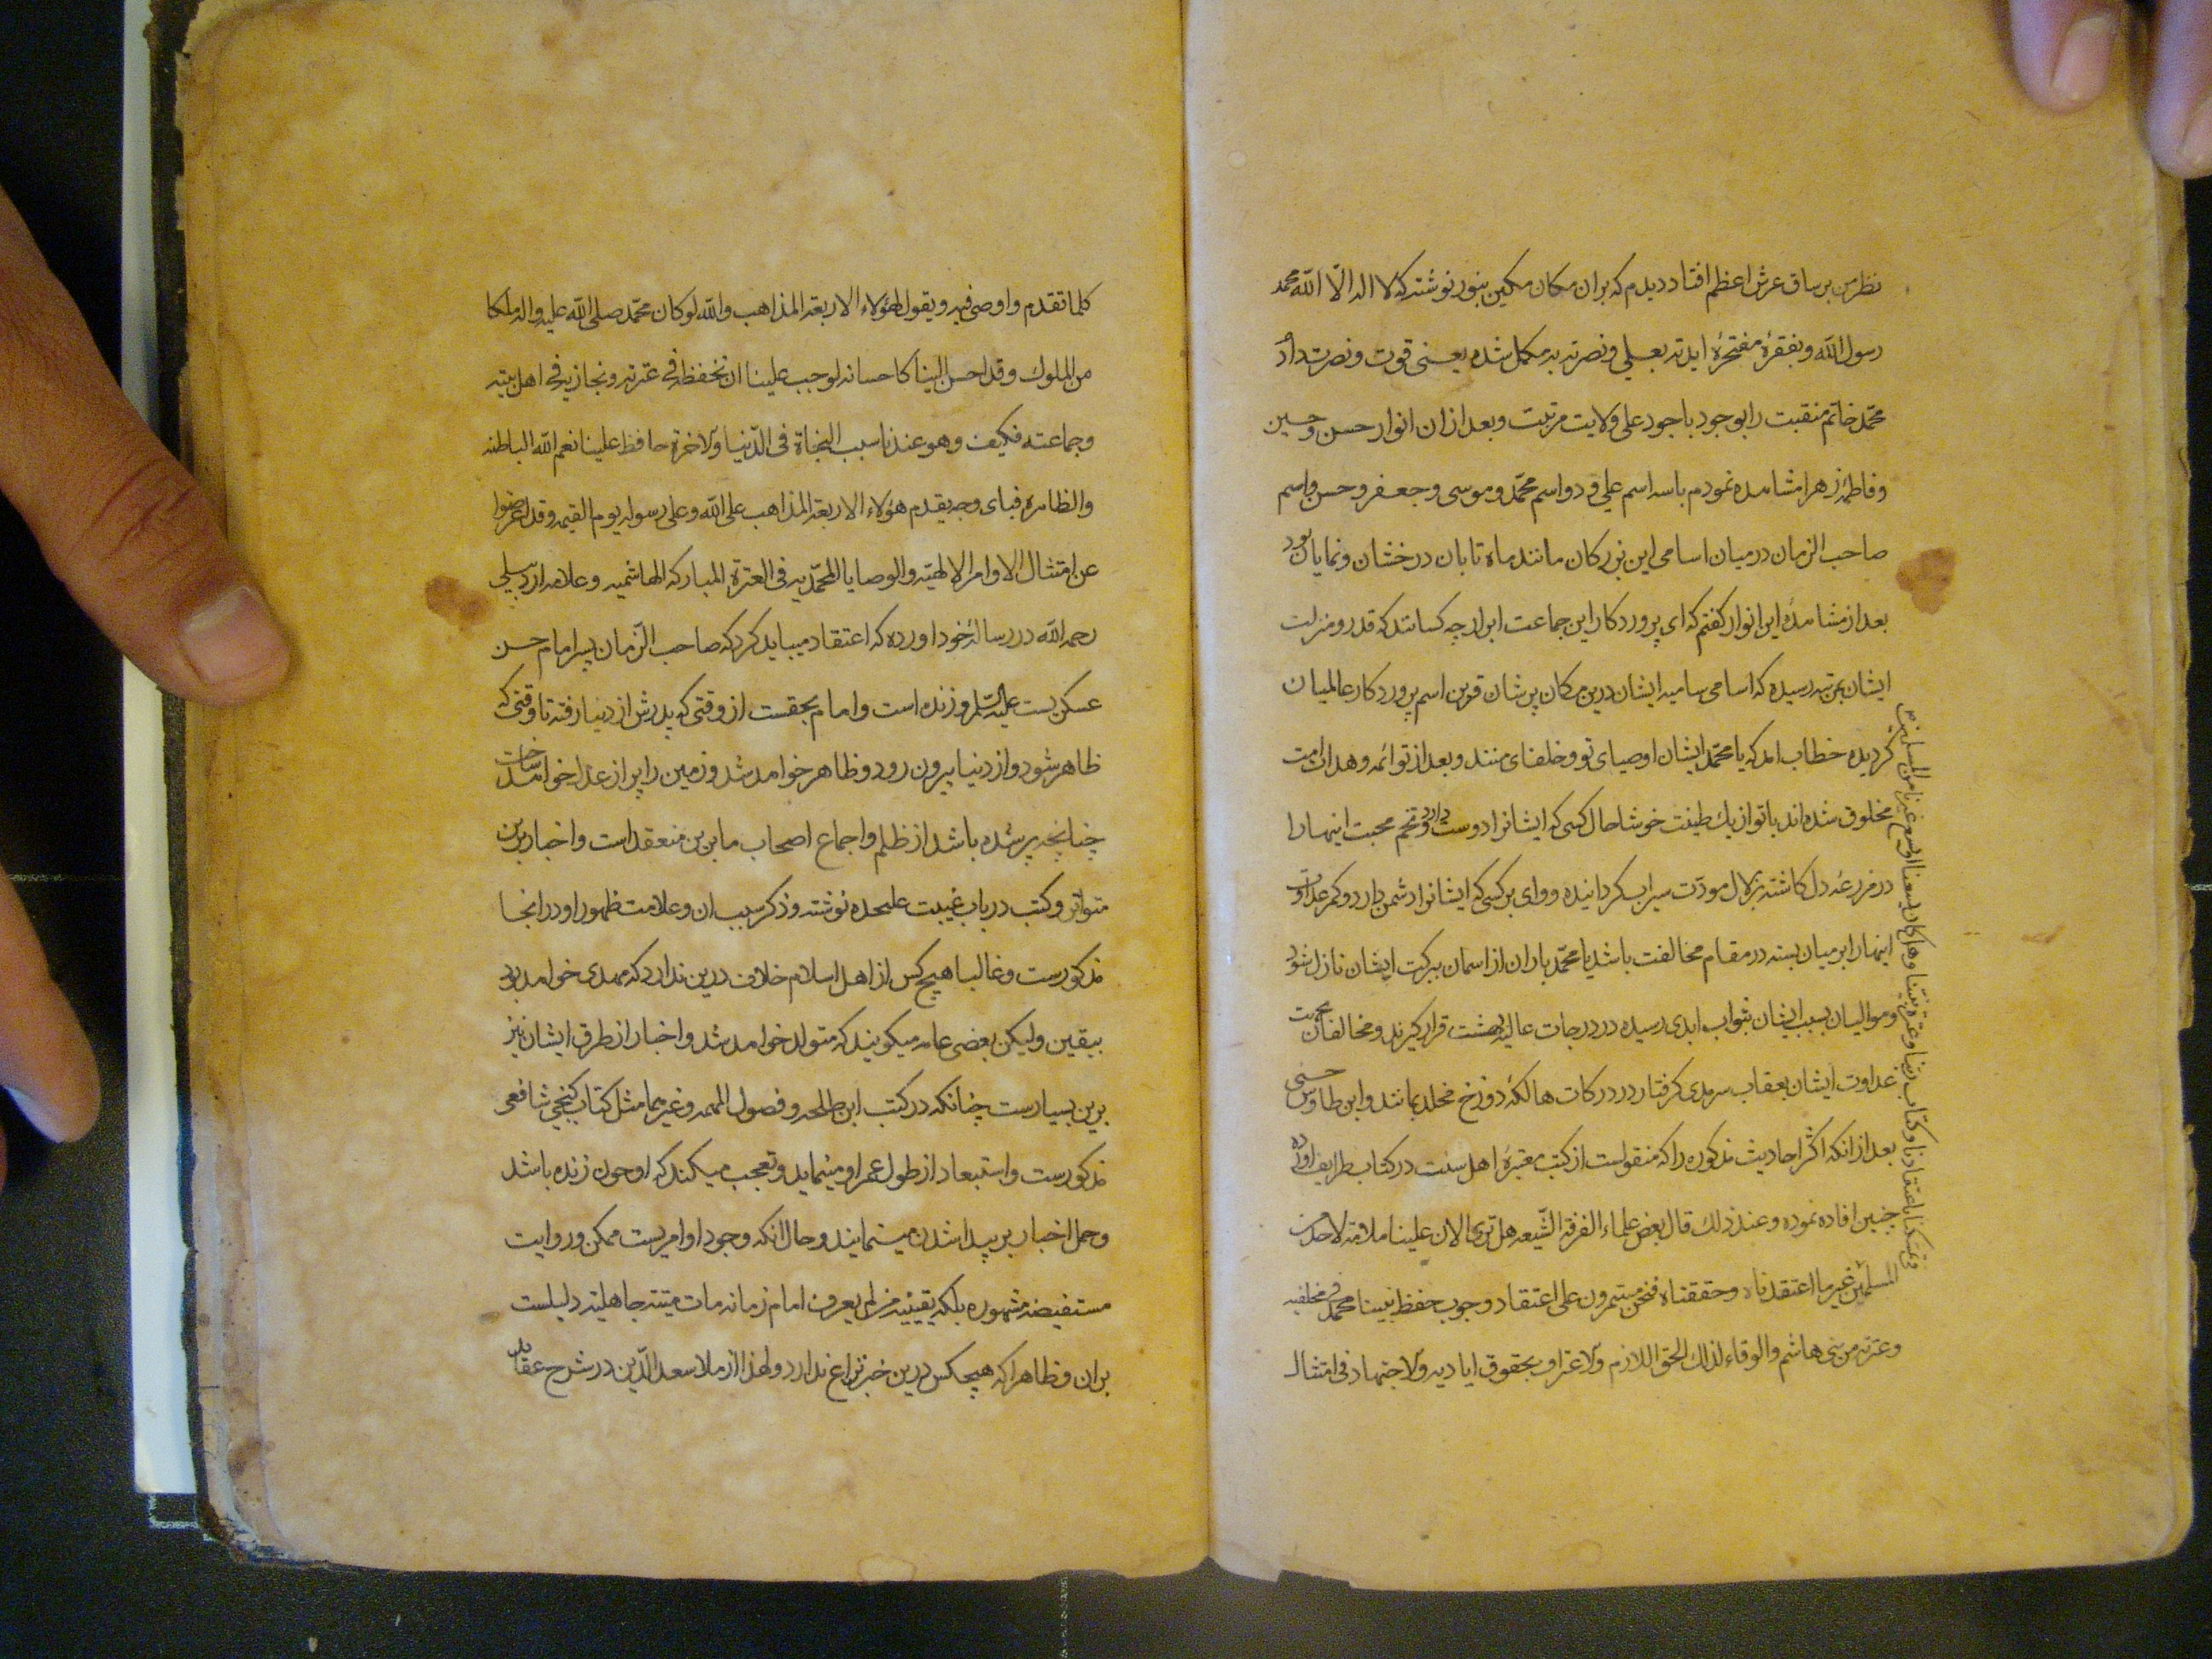 نظر من بر ساق عرش اعظم افتاد دیدم که بران مکان مکین بنور نوشته که لا اله الّا اللّه محمد
رسول اللّه و بفقرهٔ مفتخرهٔ ایدته بعلی و نصرته به مکمل شده یعنی قوت و نصرت دادم
محمّد خاتم منقبت را بوجود باجود علی ولایت مرتبت و بعد ازان انوار حسن و حسین
و فاطمهٔ زهرا مشاهده نمودم با سه اسم علی و دو اسم محمّد و موسی و جعفر و حسن و اسم
صاحب الزمان درمیان اسامی این بزرکان مانند ماه تابان درخشان و نمایان بود
بعد از مشاهدهٔ این انوار کفتم که ای پروردکار این جماعت ابرار چه کسانند که قدر و منزلت
ایشان بمرتبه رسیده که اسامی سامیه ایشان درین مکان پرشان قرین اسم پروردکار عالمیان
کردیده خطاب امد که یا محمّد ایشان اوصیای تو و خلفای منند و بعد از تو ائمه و هداة امت
مخلوق شده اند با تو از یك طینت خوشا حال کسی که ایشانرا دوست دارد و تخم محبت اینهارا
در مزرعهٔ دل کاشته بزلال مودّت سیراب کردانیده و وای بر کسی که ایشانرا دشمن دارد و کمر عداوت
اینهارا بر میان بسته در مقام مخالفت باشد یا محمّد باران از اسمان ببرکت ایشان نازل شود
و موالیان بسبب ایشان بثواب ابدی رسیده در درجات عالیهٔ بهشت قرار کیرند و مخالفان بجهت
عداوت ایشان بعقاب سرمدی کرفتار در درکات هالکهٔ دوزخ مخلد بمانند و ابن طاوس حسنی
بعد از انکه اکثر احادیث مذکوره را که منقولست از کتب معتبرهٔ اهل سنت در کتاب طرایف اورده
چنین افاده نموده و عند ذلك قال بعض علماء الفرقة الشّیعه هل تری الان علینا ملامة لاحد من
المسلمین غیر ما اعتقدناه و حققناه فنحن مستمرون علی اعتقاد وجوب حفظ نبینا محمد فی مخلفیه
و عترته من بنی هاشم و الوفاء لذلك الحق اللازم و الاعتراف بحقوق ایادیه و الاجتهاد فی امتثال
و تمسکنا باعتقادنا و کتاب ربنا و عترة نبینا و هل کان یسعنا او یسع غیرنا من المسلمین
کلما تقدم و اوصی فیه و یقول لهؤلاء الاربعة المذاهب و اللّه لو کان محمّد صلی اللّه علیه و اله ملکا
من الملوك و قد احسن الینا کاحسانه لوجب علینا ان نحفظه فی عترته و نجازیه فی اهل بیته
و جماعته فکیف و هو عندنا سبب النجاة فی الدّنیا و الاخرة حافظ علینا نعم اللّه الباطنه
و الظاهره فبای وجه یقدم هؤلاء الاربعة المذاهب علی اللّه و علی رسوله یوم القیمه و قد اعرضوا
عن امتثال الاوامر الالهیّه و الوصایا المحمّدیه فی العترة المبارکه الهاشمیه و علامه اردبیلی
رحمه اللّه در رسالهٔ خود اورده که اعتقاد میباید کرد که صاحب الزّمان پسر امام حسن
عسکریست علیه السّلم و زنده است و امام بحقست از وقتی که پدرش از دنیا رفته تا وقتی که
ظاهر شود و از دنیا بیرون رود و ظاهر خواهد شد و زمین را پر از عدل خواهد ساخت
چنانچه پر شده باشد از ظلم و اجماع اصحاب ما برین منعقد است و اخبار برین
متواتر و کتب در باب غیبت علیحده نوشته و ذکر سبب ان و علامت ظهور او در انجا
مذکورست و غالبا هیچ کس از اهل اسلام خلاف درین ندارد که مهدی خواهد بود
بیقین و لیکن بعضی عامه میکویند که متولد خواهد شد و اخبار از طرق ایشان نیز
برین بسیارست چنانکه در کتب ابن طلحه و فصول المهمه و غیرهما مثل کتاب کنجی شافعی
مذکورست و استبعاد از طول عمر او مینماید و تعجب میکند که او چون زنده باشد
و حمل اخبار بر پیدا شدن مینمایند و حال انکه وجود او امریست ممکن و روایت
مستفیضه مشهوره بلکه یقینیه من لم یعرف امام زمانه مات میتة جاهلیة دلیلست
بران و ظاهرا که هیچکس درین خبر نزاع ندارد و لهذا از ملا سعد الدّین در شرح عقاید